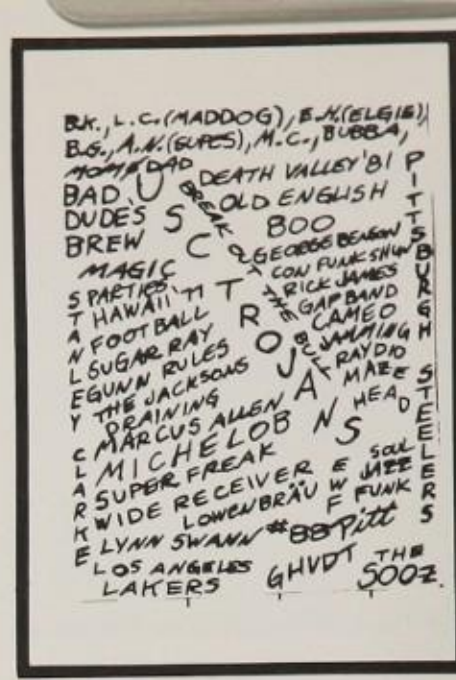 B.K., L.C. (MADDOG), E.H. (ELGIE),
B.G., A.N. (SUPES), M.C., BUBBA,
MOM & DAD
DEATH VALLEY '81
BAD
DUDE'S
BREW
OLD ENGLISH
BOO
USC TROJANS
BREAK OUT THE BULL
GEORGE BENSON
CON FUNK SHUN
RICK JAMES
GAP BAND
CAMEO
JAMMING
RAYDIO
MAZE
HEAD
PITTSBURGH STEELERS
STANLEY CLARKE
MAGIC
PARTIES
HAWAII '71
FOOTBALL
SUGAR RAY
GUNN RULES
THE JACKSONS
DRAINING
MARCUS ALLEN
MICHELOB
SUPER FREAK
WIDE RECEIVER
LOWENBRÄU
EWF
SOUL
JAZZ
FUNK
LYNN SWANN #88 Pitt
LOS ANGELES
LAKERS
GHVDT THE
SOOZ.